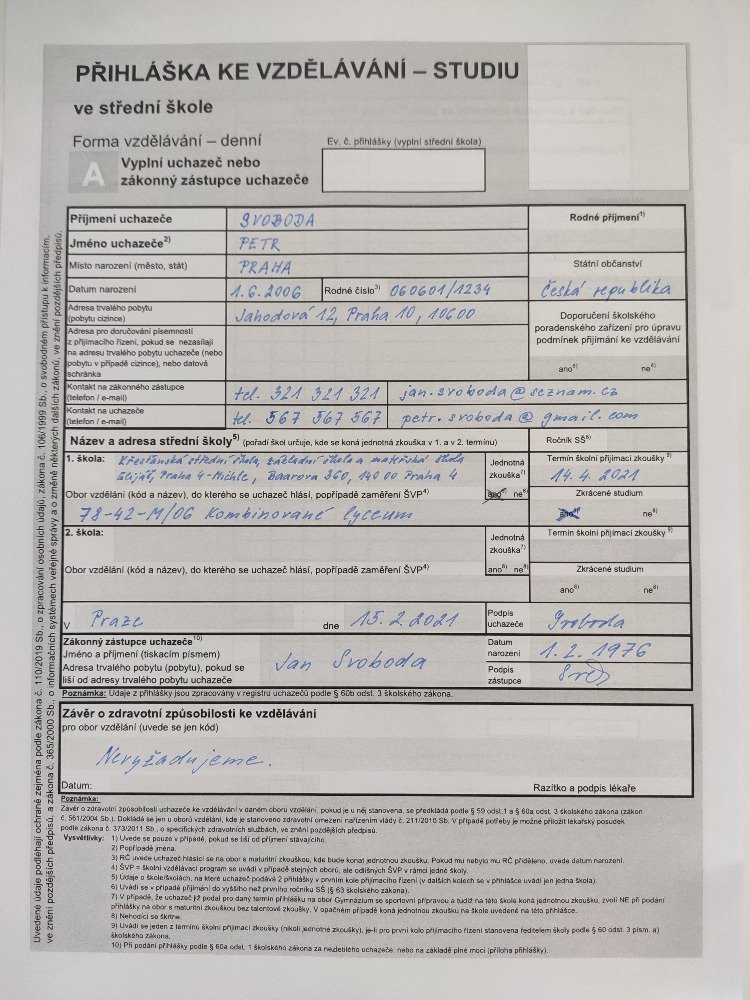 PŘIHLÁŠKA KE VZDĚLÁVÁNÍ – STUDIU
ve střední škole
Forma vzdělávání – denní
Ev. č. přihlášky (vyplní střední škola)
A Vyplní uchazeč nebo
zákonný zástupce uchazeče
Příjmení uchazeče SVOBODA Rodné příjmení1)
Jméno uchazeče2) PETR
Místo narození (město, stát) PRAHA Státní občanství
Datum narození 1.6.2006 Rodné číslo3) 060601/1234 Česká republika
Adresa trvalého pobytu
(pobytu cizince) Jahodová 12, Praha 10, 10600
Doporučení školského
poradenského zařízení pro úpravu
podmínek přijímání ke vzdělávání
ano8) ne8)
Adresa pro doručování písemností
z přijímacího řízení, pokud se nezasílají
na adresu trvalého pobytu uchazeče (nebo
pobytu v případě cizince), nebo datová
schránka
Kontakt na zákonného zástupce
(telefon / e-mail) tel. 321 321 321 jan.svoboda@seznam.cz
Kontakt na uchazeče
(telefon / e-mail) tel. 567 567 567 petr.svoboda@gmail.com
Název a adresa střední školy5) (pořadí škol určuje, kde se koná jednotná zkouška v 1. a v 2. termínu) Ročník SŠ6)
1. škola: Křesťanská střední škola, základní škola a mateřská škola
Elijáš, Praha 4-Michle, Baarova 360, 140 00 Praha 4
Jednotná
zkouška7)
ano8) ne8)
Termín školní přijímací zkoušky 9)
14.4.2021
Obor vzdělání (kód a název), do kterého se uchazeč hlásí, popřípadě zaměření ŠVP4)
78-42-M/06 Kombinované lyceum
Zkrácené studium
ano8) ne8)
2. škola:
Jednotná
zkouška7)
ano8) ne8)
Termín školní přijímací zkoušky 9)
Obor vzdělání (kód a název), do kterého se uchazeč hlásí, popřípadě zaměření ŠVP4)
Zkrácené studium
ano8) ne8)
V Praze dne 15.2.2021 Podpis
uchazeče Svoboda
Zákonný zástupce uchazeče10)
Jméno a příjmení (tiskacím písmem)
Adresa trvalého pobytu (pobytu), pokud se
liší od adresy trvalého pobytu uchazeče
Jan Svoboda
Datum
narození 1.2.1976
Podpis
zástupce
Poznámka: Údaje z přihlášky jsou zpracovány v registru uchazečů podle § 60b odst. 3 školského zákona.
Závěr o zdravotní způsobilosti ke vzdělávání
pro obor vzdělání (uvede se jen kód)
Nevyžadujeme.
Datum: Razítko a podpis lékaře
Poznámka:
Závěr o zdravotní způsobilosti uchazeče ke vzdělávání v daném oboru vzdělání, pokud je u něj stanovena, se předkládá podle § 59 odst. 1 a § 60a odst. 3 školského zákona (zákon
č. 561/2004 Sb.). Dokládá se jen u oborů vzdělání, kde je stanoveno zdravotní omezení nařízením vlády č. 211/2010 Sb. V případě potřeby je možné přiložit lékařský posudek
podle zákona č. 373/2011 Sb., o specifických zdravotních službách, ve znění pozdějších předpisů.
Vysvětlivky: 1) Uvede se pouze v případě, pokud se liší od příjmení stávajícího.
2) Popřípadě jména.
3) RČ uvede uchazeč hlásící se na obor s maturitní zkouškou, kde bude konat jednotnou zkoušku. Pokud mu nebylo mu RČ přiděleno, uvede datum narození.
4) ŠVP = školní vzdělávací program se uvádí v případě stejných oborů, ale odlišných ŠVP v rámci jedné školy.
5) Údaje o škole/školách, na které uchazeč podává 2 přihlášky v prvním kole přijímacího řízení (v dalších kolech se v přihlášce uvedí jen jedna škola).
6) Uvádí se v případě přijímání do vyššího než prvního ročníku SŠ (§ 63 školského zákona).
7) V případě, že uchazeč již podal pro daný termín přihlášku na obor Gymnázium se sportovní přípravou a tudíž na této škole koná jednotnou zkoušku, zvolí NE při podání
přihlášky na obor s maturitní zkouškou bez talentové zkoušky. V opačném případě koná jednotnou zkoušku na škole uvedené na této přihlášce.
8) Nehodící se škrtne.
9) Uvádí se jeden z termínů školní přijímací zkoušky (nikoli jednotné zkoušky), je-li pro první kolo přijímacího řízení stanovena ředitelem školy podle § 60 odst. 3 písm. a)
školského zákona.
10) Při podání přihlášky podle § 60a odst. 1 školského zákona za nezletilého uchazeče, nebo na základě plné moci (příloha přihlášky).
Uvedené údaje podléhají ochraně zejména podle zákona č. 110/2019 Sb., o zpracování osobních údajů, zákona č. 106/1999 Sb., o svobodném přístupu k informacím,
ve znění pozdějších předpisů, a zákona č. 365/2000 Sb., o informačních systémech veřejné správy a o změně některých dalších zákonů, ve znění pozdějších předpisů.